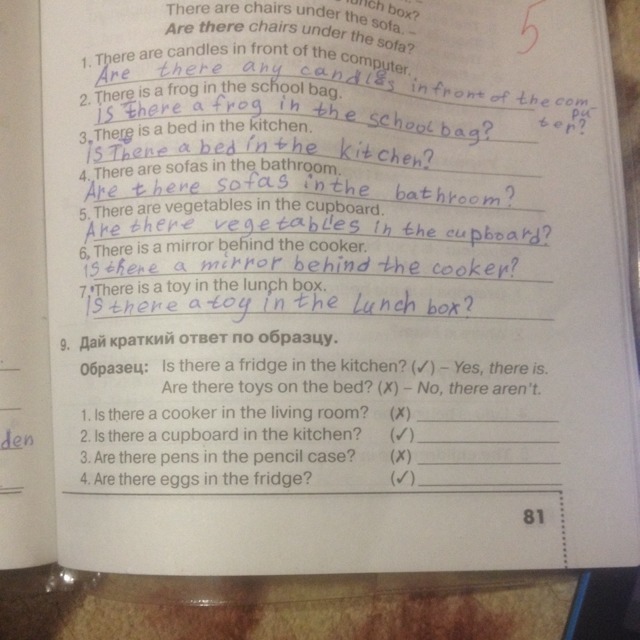 lunch box?
There are chairs under the sofa. –
Are there chairs under the sofa?
5
1. There are candles in front of the computer.
Are there any candles in front of the com-
pu
ter?
2. There is a frog in the school bag.
Is there a frog in the school bag?
3. There is a bed in the kitchen.
Is There a bed in the kitchen?
4. There are sofas in the bathroom.
Are there sofas in the bathroom?
5. There are vegetables in the cupboard.
Are there vegetables in the cupboard?
6. There is a mirror behind the cooker.
Is there a mirror behind the cooker?
7. There is a toy in the lunch box.
Is there a toy in the Lunch box?
9. Дай краткий ответ по образцу.
Образец: Is there a fridge in the kitchen? (✓) – Yes, there is.
Are there toys on the bed? (✗) – No, there aren't.
1. Is there a cooker in the living room? (✗)
2. Is there a cupboard in the kitchen? (✓)
den
3. Are there pens in the pencil case? (✗)
4. Are there eggs in the fridge? (✓)
81